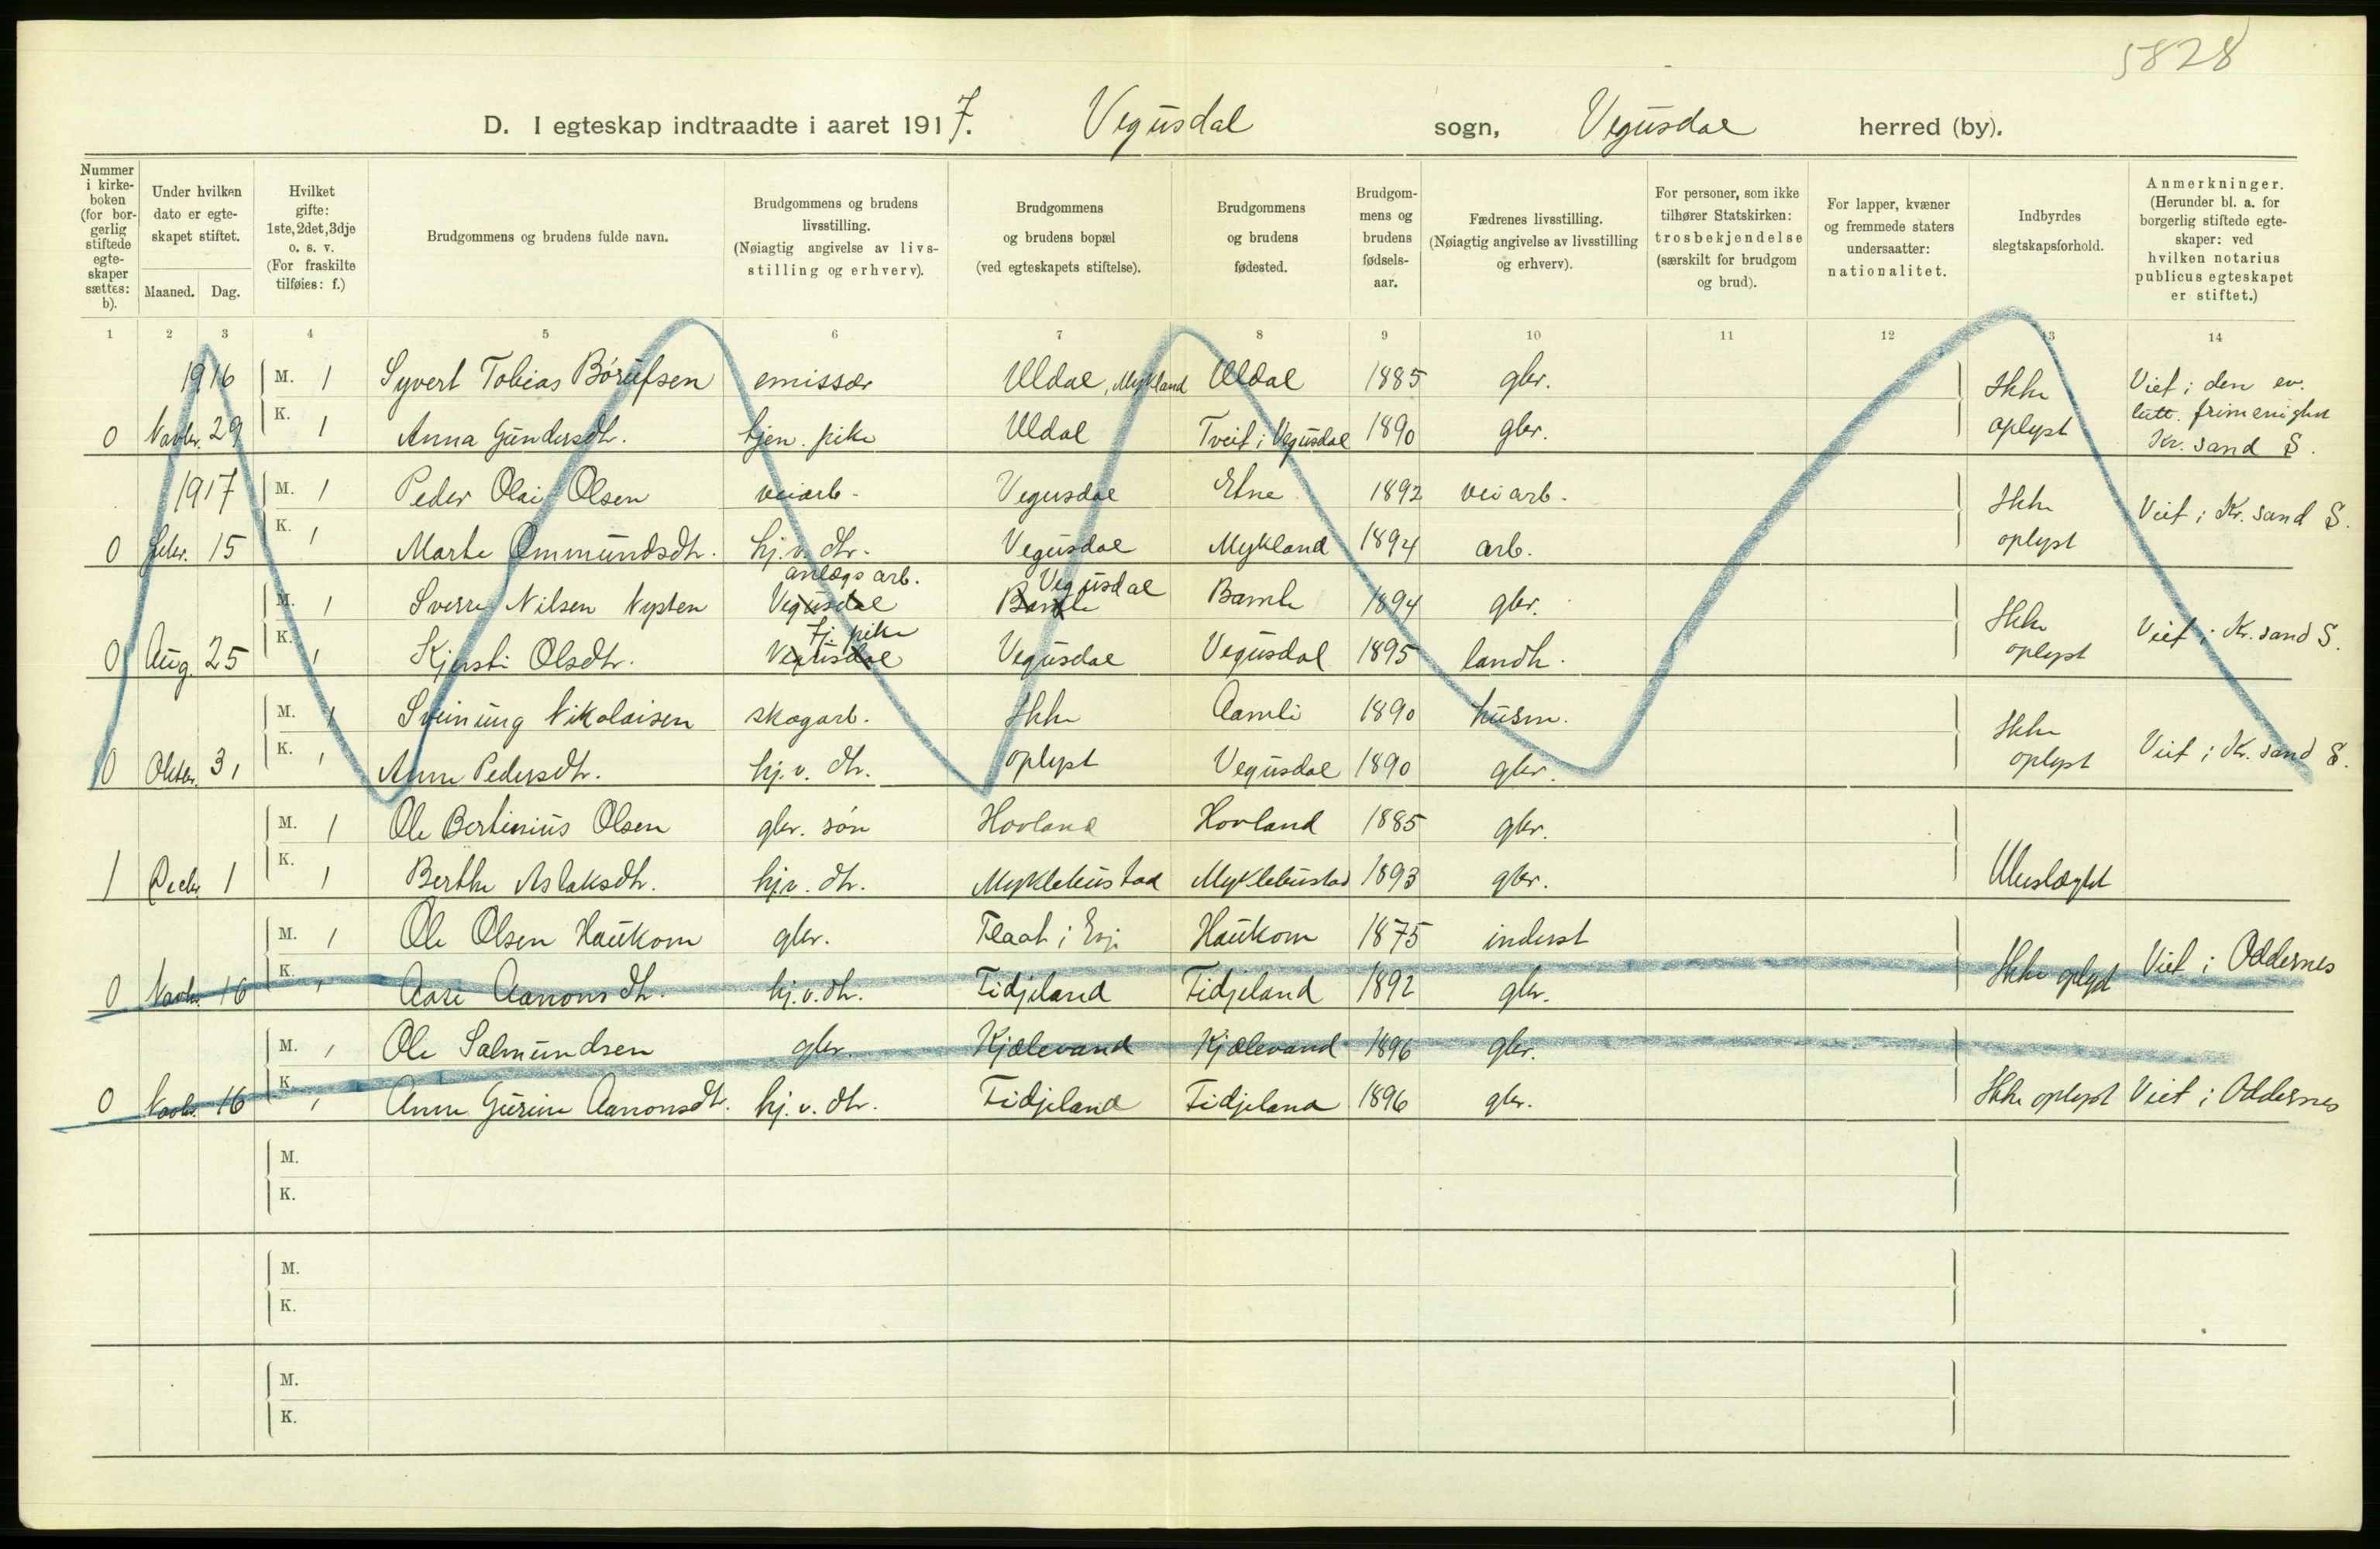 5828
D. I egteskap indtraadte i aaret 1917. Vegusdal sogn, Vegusdal herred (by).
Nummer i kirke-boken (for bor-gerlig stiftede egte-skaper sættes: b).
Under hvilken dato er egte-skapet stiftet.
Maaned. Dag.
Hvilket gifte: 1ste, 2det, 3dje o. s. v. (For fraskilte tilføies: f.)
Brudgommens og brudens fulde navn.
Brudgommens og brudens livsstilling. (Nøiagtig angivelse av livs-stilling og erhverv).
Brudgommens og brudens bopæl (ved egteskapets stiftelse).
Brudgommens og brudens fødested.
Brudgom-mens og brudens fødsels-aar.
Fædrenes livsstilling. (Nøiagtig angivelse av livsstilling og erhverv).
For personer, som ikke tilhører Statskirken: trosbekjendelse (særskilt for brudgom og brud).
For lapper, kvæner og fremmede staters undersaatter: nationalitet.
Indbyrdes slegtskapsforhold.
Anmerkninger. (Herunder bl. a. for borgerlig stiftede egte-skaper: ved hvilken notarius publicus egteskapet er stiftet.)
1 2 3 4 5 6 7 8 9 10 11 12 13 14
1916 M. 1 Syvert Tobias Børufsen emissær Uldal, Mykland Uldal 1885 gbr. Ikke Viet i den ev.
0 Novbr. 29 K. 1 Anna Gundersdtr. tjen. pike Uldal Tveit i Vegusdal 1890 gbr. oplyst lutt. frimenighet
Kr. sand S.
1917 M. 1 Peder Olai Olsen veiarb. Vegusdal Etne 1892 veiarb. Ikke Viet i Kr. sand S.
0 Febr. 15 K. 1 Marte Ommundsdtr. hj. v. dtr. Vegusdal Mykland 1894 arb. oplyst
anlægsarb. Vegusdal
M. 1 Sverre Nilsen Nysten Vegusdal Bamle Bamle 1894 gbr. Ikke Viet i Kr. sand S.
tj. pike
0 Aug. 25 K. 1 Kjersti Olsdtr. Vegusdal Vegusdal Vegusdal 1895 landh. oplyst
M. 1 Sveinung Nikolaisen skogarb. Ikke Aamli 1890 husm. Ikke Viet i Kr. sand S.
0 Oktbr. 31 K. 1 Anne Pedersdtr. hj. v. dtr. oplyst Vegusdal 1890 gbr. oplyst
M. 1 Ole Bertinius Olsen gbr. søn Hovland Hovland 1885 gbr.
1 Decbr. 1 K. 1 Berthe Aslaksdtr. hj. v. dtr. Myklebustad Myklebustad 1893 gbr. Ubeslægtet
M. 1 Ole Olsen Haukom gbr. Flaat i Evje Haukom 1875 inderst
0 Novbr. 16 K. 1 Aase Aanonsdtr. hj. v. dtr. Fidjeland Fidjeland 1892 gbr. Ikke oplyst Viet i Oddernes
M. 1 Ole Salmundsen gbr. Kjælevand Kjælevand 1896 gbr.
0 Novbr. 16 K. 1 Anne Gurine Aanonsdtr. hj. v. dtr. Fidjeland Fidjeland 1896 gbr. Ikke oplyst Viet i Oddernes
M.
K.
M.
K.
M.
K.